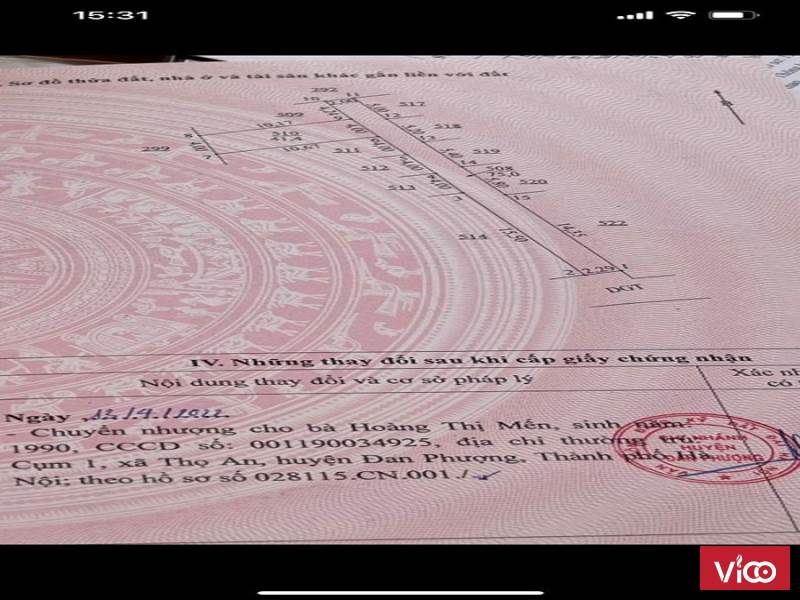 15:31
. Sơ đồ thửa đất, nhà ở và tài sản khác gắn liền với đất
292
10
11
2.00
509
10,17
517
12
8
510
41,4
4,00
518
299
4,00
7
10,67
511
519
14
512
508
75,0
520
513
3
15
514
15,50
14,35
522
2
2,29
1
DGT
IV. Những thay đổi sau khi cấp giấy chứng nhận
Nội dung thay đổi và cơ sở pháp lý
Xác nh
có
Ngày 12/9/2022
- Chuyển nhượng cho bà Hoàng Thị Mến, sinh năm
1990, CCCD số: 001190034925, địa chỉ thường trú
Cụm 1, xã Thọ An, huyện Đan Phượng, Thành phố Hà
Nội; theo hồ sơ số 028115.CN.001./
CHI NHÁNH
HUYỆN
ĐAN PHƯỢNG
ViCO